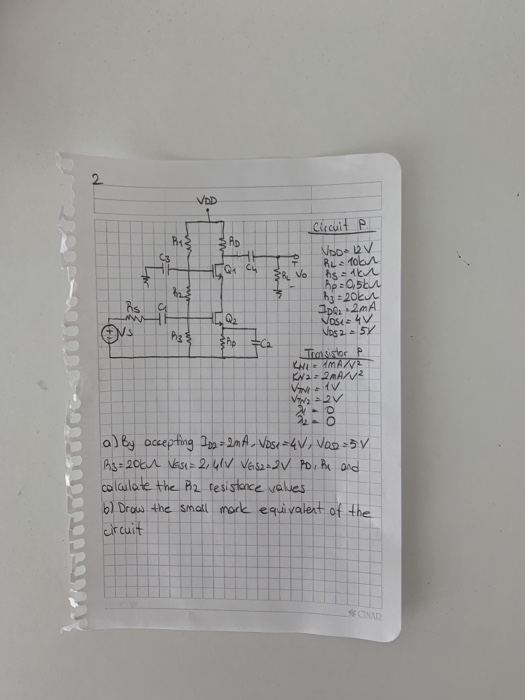 2
VDD
Circuit P
R1
RD
C3
C4
Q1
RL Vo
R2
Rs
C1
Q2
Vs
R3
Rp
C2
VDD = 12V
RL = 10kΩ
Rs = 1kΩ
Rp = 0,5kΩ
R3 = 20kΩ
IDQ2 = 2mA
VDS1 = 4V
VDS2 = 5V
Transistor P
KN1 = 1mA/V²
KN2 = 2mA/V²
VTN1 = 1V
VTN2 = 2V
λ1 = 0
λ2 = 0
a) By accepting ID2 = 2mA, VDS1 = 4V, VDS2 = 5V
R3 = 20kΩ VGS1 = 2,41V VGS2 = 2V RD, R1 and
calculate the R2 resistance values
b) Draw the small mark equivalent of the
circuit
ÇINAR